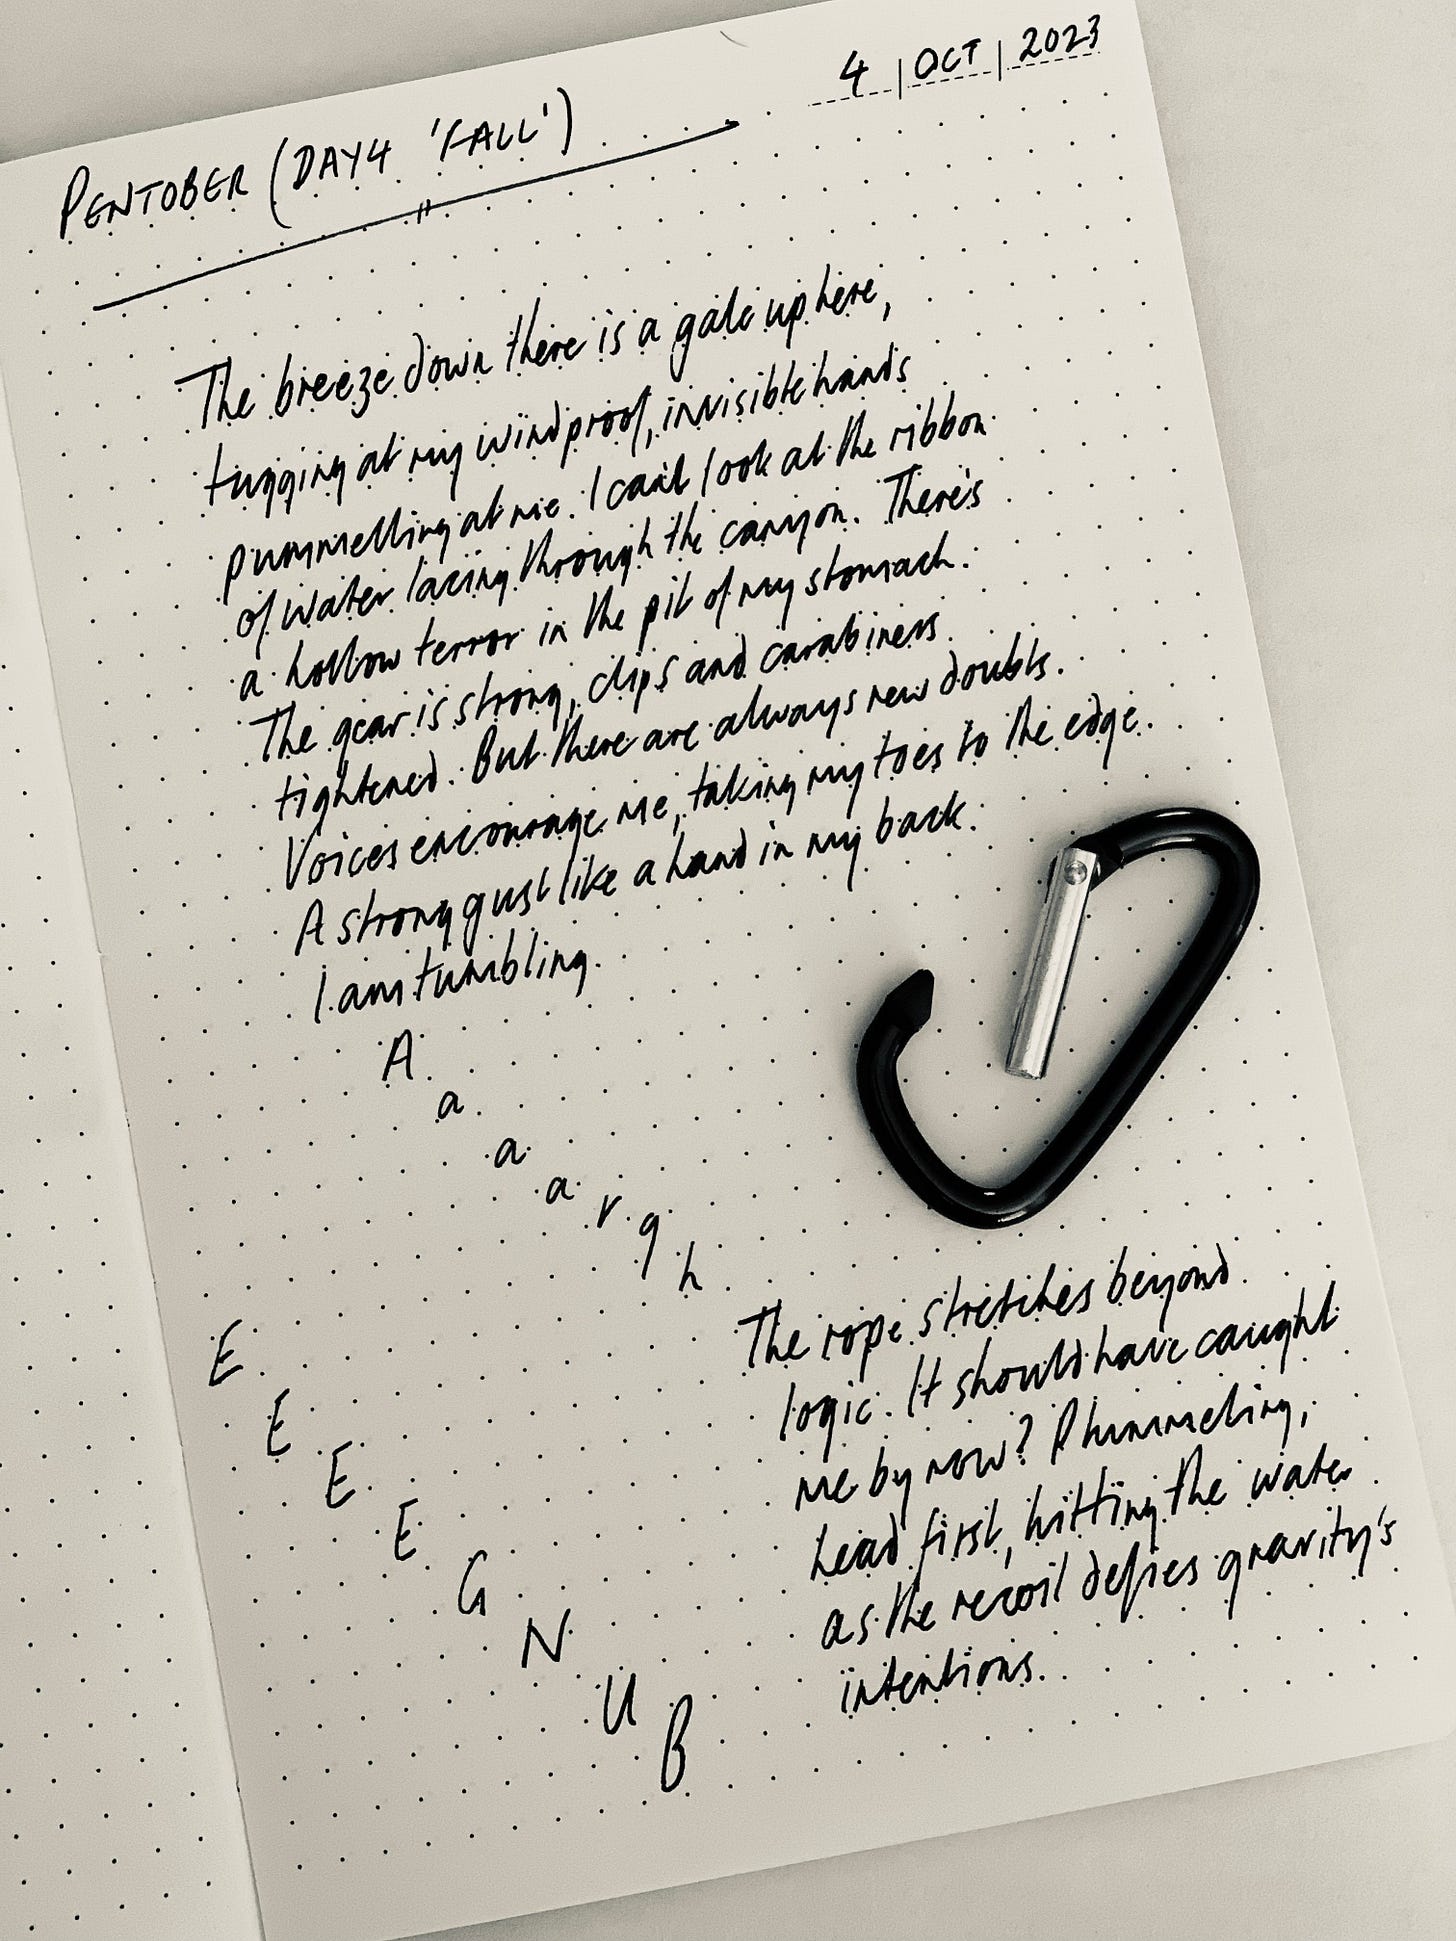 4 | OCT | 2023
PENTOBER (DAY 4 'FALL')
The breeze down there is a gale up here,
tugging at my windproof, invisible hands
pummelling at me. I can't look at the ribbon
of water lacing through the canyon. There's
a hollow terror in the pit of my stomach.
The gear is strong, clips and carabiners
tightened. But there are always new doubts.
Voices encourage me, taking my toes to the edge.
A strong gust like a hand in my back.
I am tumbling.
A
a
a
a
r
g
h
E
E
E
E
G
N
U
B
The rope stretches beyond
logic. It should have caught
me by now? Plummeting,
head first, hitting the water
as the recoil defies gravity's
intentions.